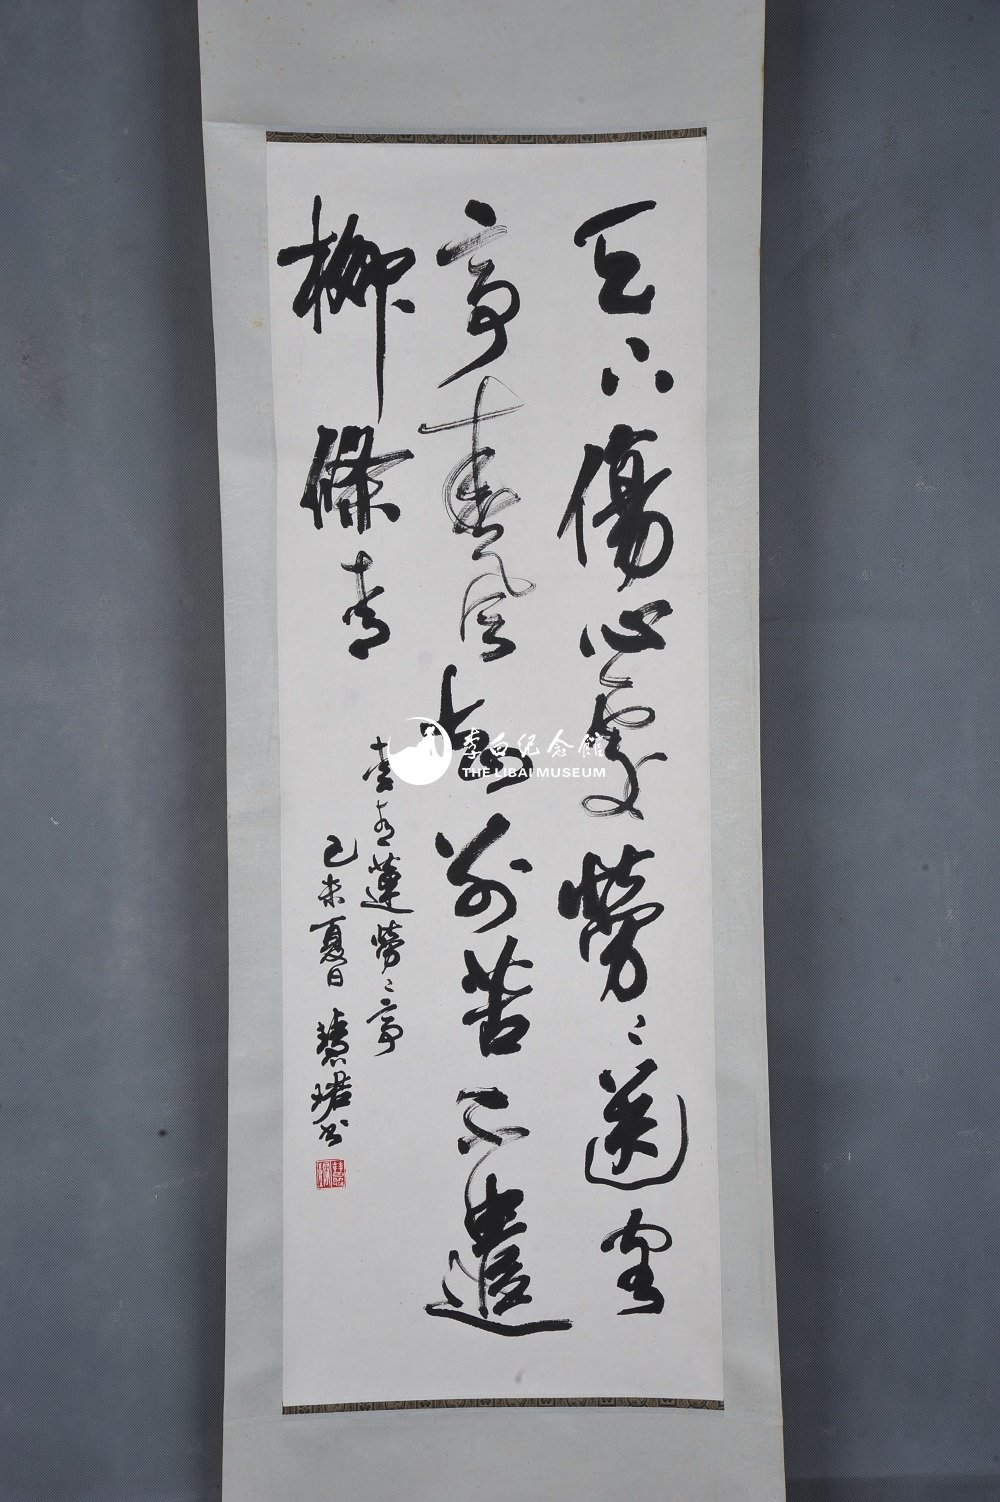 天下傷心處勞〻送客
亭春風知別苦不遣
柳條青
李青蓮勞〻亭
己未夏日 慧珺书
李白纪念館
THE LIBAI MUSEUM